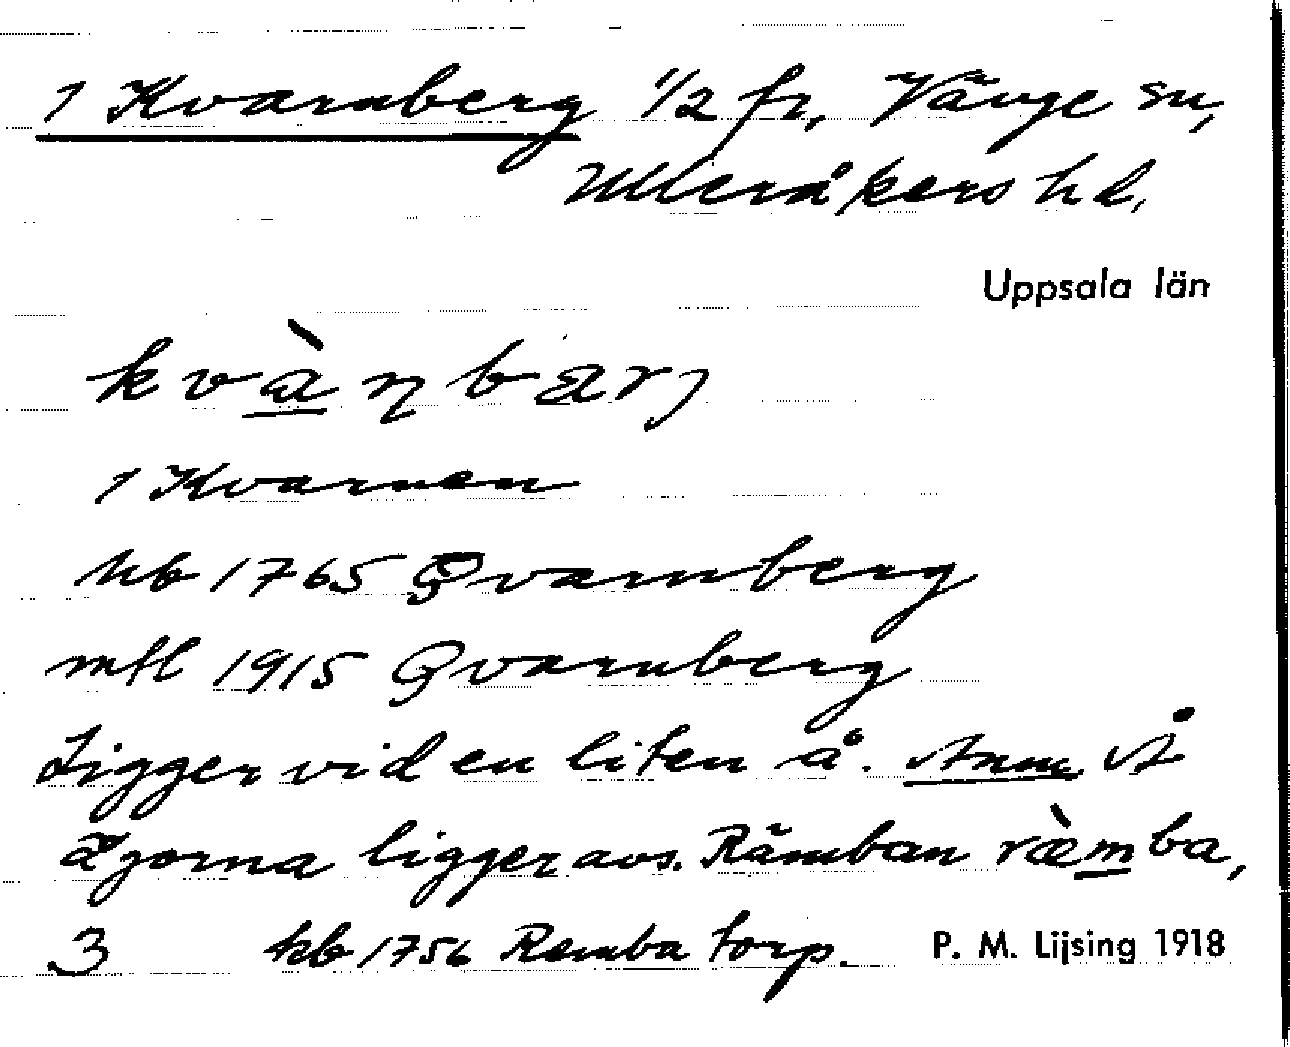 1 Kvarnberg 1/2 fr, Vänge sn,
Ulleråkers hd,
Uppsala län
kvànbærj
1 Kvarnen
hb 1765 Qvarnberg
mtl 1915 Qvarnberg
Ligger vid en liten å. Anm. Å
ägorna ligger avs. Rämban ræ̀mba,
3 hb 1756 Remba torp.
P. M. Lijsing 1918